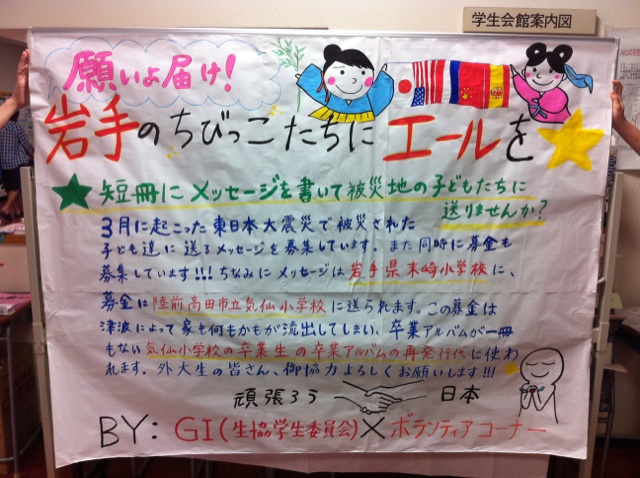 学生会館案内図
願いよ届け!
岩手のちびっこたちにエールを
★短冊にメッセージを書いて被災地の子どもたちに
送りませんか?
3月に起こった東日本大震災で被災された
子ども達に送るメッセージを募集しています。また同時に募金も
募集しています!!!ちなみにメッセージは岩手県末崎小学校に、
募金は陸前高田市立気仙小学校に送られます。この募金は
津波によって家も何もかもが流出してしまい、卒業アルバムが一冊
もない気仙小学校の卒業生の卒業アルバムの再発行代に使わ
れます。外大生の皆さん、御協力よろしくお願いします!!!
頑張ろう 日本
BY: GI(生協学生委員会)×ボランティアコーナー